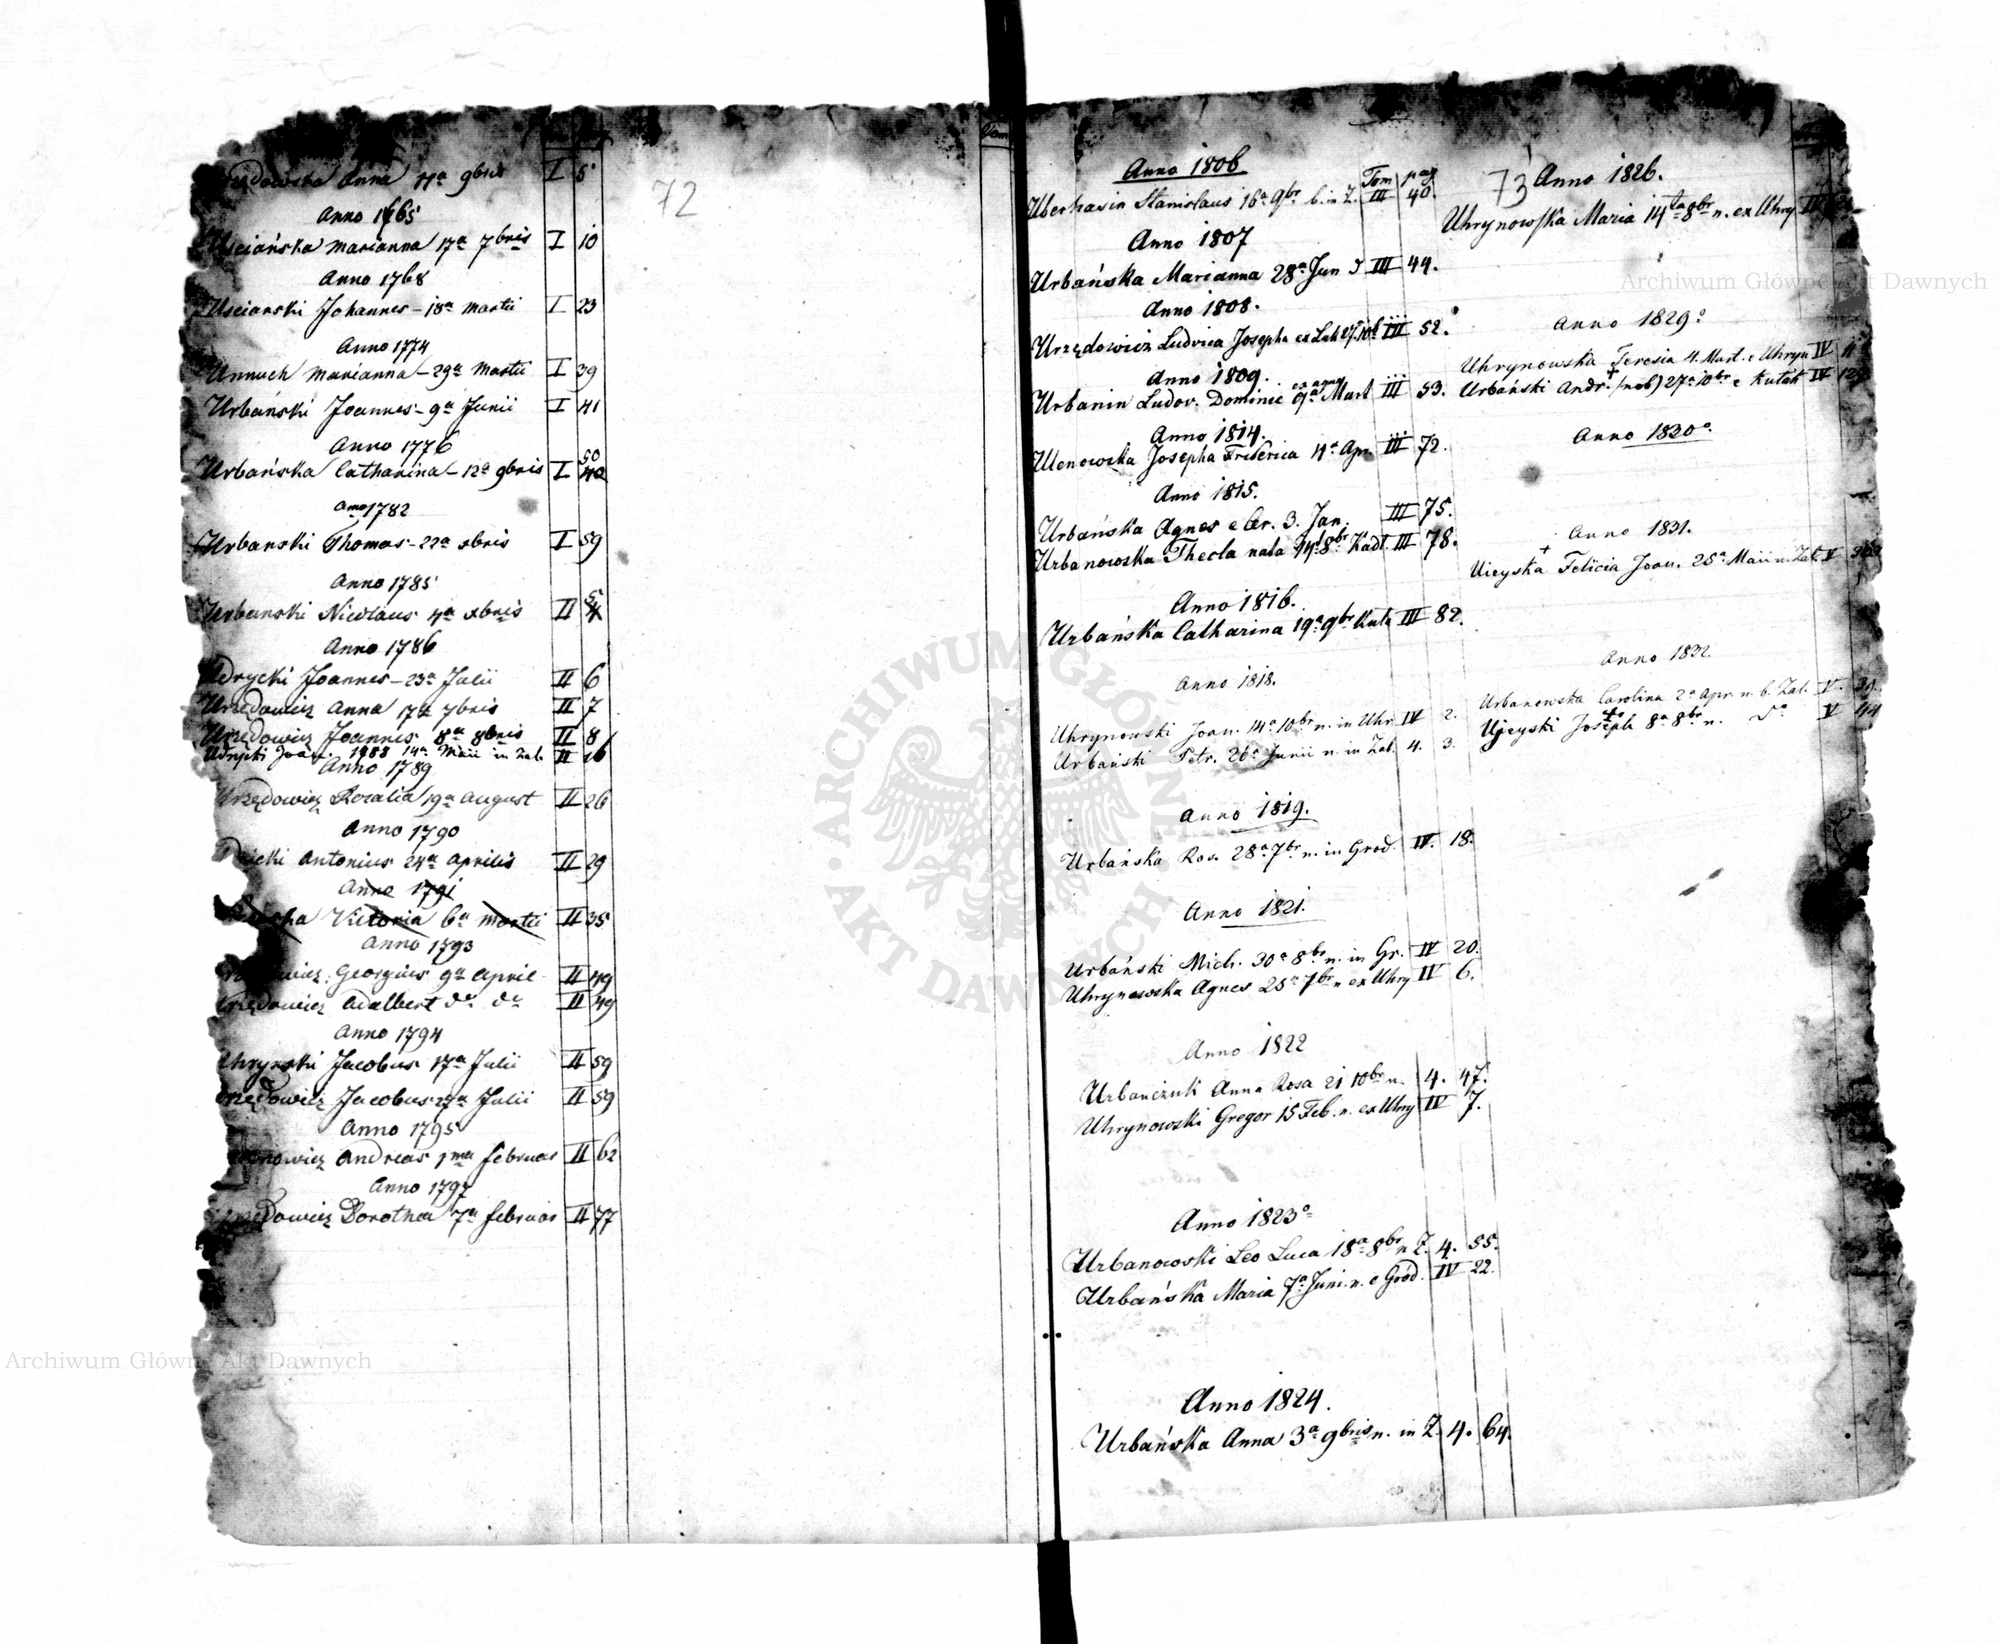 Anna 11a 9bris I 5
72
Anno 1765
Usciańska Marianna 17a 7bris I 10
Anno 1768
Uscianski Johannes - 18a Martii I 23
Anno 1774
Unnuch Marianna - 29a Martii I 39
Urbański Joannes - 9a Junii I 41
Anno 1776
50
Urbańska Catharina - 12a 9bris I
Anno 1782
Urbanski Thomas - 22a xbris I 59
Anno 1785
Urbanski Nicolaus 4a xbris II 5
Anno 1786
Udrycki Joannes - 23a Julii II 6
Urzędowicz Anna 17a 7bris II 7
Urzędowicz Joannes 8a 8bris II 8
Udrycki Joan. 1788 14a Maii in Zal. II 16
Anno 1789
Urzędowicz Rozalia 19a August II 26
Anno 1790
Antonius 24a Aprilis II 29
Anno 1791
Victoria 6a Martii II 35
Anno 1793
Georgius 9a April II 49
Urzędowicz Adalbert do do II 49
Anno 1794
Uhrynski Jacobus 17a Julii II 59
Urzędowicz Jacobus 27a Julii II 59
Anno 1795
Andreas 1ma Februar II 62
Anno 1797
Urzędowicz Dorothea 7a Februar II 77
Tom
Anno 1806
Tom pag
Stanislaus 16a 9br b. in Z. III 40.
Anno 1807
Urbańska Marianna 28a Jun III 44.
Anno 1808.
Urzędowicz Ludvica Josepha III 52.
Anno 1809.
Urbanin Ludov. Dominic 9a Mart III 53.
Anno 1814.
Ulenowska Josepha Friderica 4a Apr. III 72.
Anno 1815.
Urbańska Agnes e Gr. 3. Jan. III 75.
Urbanowska Thecla nata 14a 8br Kadl. III 78.
Anno 1816.
Urbańska Catharina 19a 9br Kuta III 82.
Anno 1818.
Uhrynowski Joan. 14a 10br n. in Uhr. IV 2.
Urbański Petr. 26a Junii n. in Zal. 4. 3.
Anno 1819.
Urbańska Ros. 28a 7br n. in Grod. IV. 18.
Anno 1821.
Urbański Mich. 30a 8br n. in Gr. IV 20.
Uhrynowska Agnes 25a 7br n ex Uhry IV 6.
Anno 1822
Urbańczuk Anna Rosa 21 10br n. 4. 47.
Uhrynowski Gregor 15 Feb. n. ex Uhry IV 7.
Anno 1823o
Urbanowski Leo Luca 18a 8br n Z. 4. 55.
Urbańska Maria 7a Juni. n. e Gród. IV 22.
Anno 1824.
Urbańska Anna 3a 9bris n. in Z. 4. 64.
73
Anno 1826.
Uhrynowska Maria 14ta 8br n. ex Uhry IV
Anno 1829o
Uhrynowska Teresia 4. Mart. e Uhryn IV 11
Urbański Andr. (nob) 27a 10br e Kutak IV
Anno 1830o.
Anno 1831.
Uieyska Felicia Joan. 25a Maii n. Zal. V
Anno 1832
Urbanowska Carolina 2a Apr. n. b. Zal. V. 39.
Ujeyski Joseph 8a 8br n. do V 44
ARCHIWUM GŁÓWNE AKT DAWNYCH
Archiwum Główne Akt Dawnych
Archiwum Główne Akt Dawnych